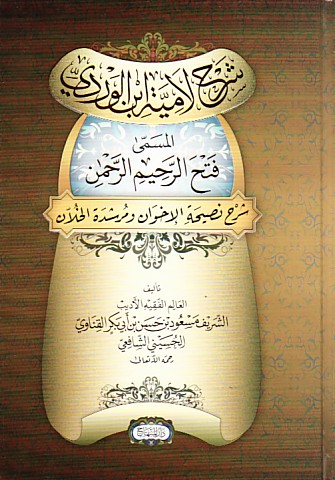 شرح لامية ابن الوردي
المسمى
فتح الرحيم الرحمن
شرح نصيحة الإخوان ومرشدة الخلان
تأليف
العالم الفقيه الأديب
الشريف مسعود بن حسن بن أبي بكر القناوي
الحسيني الشافعي
رحمه الله تعالى
دار المنهاج